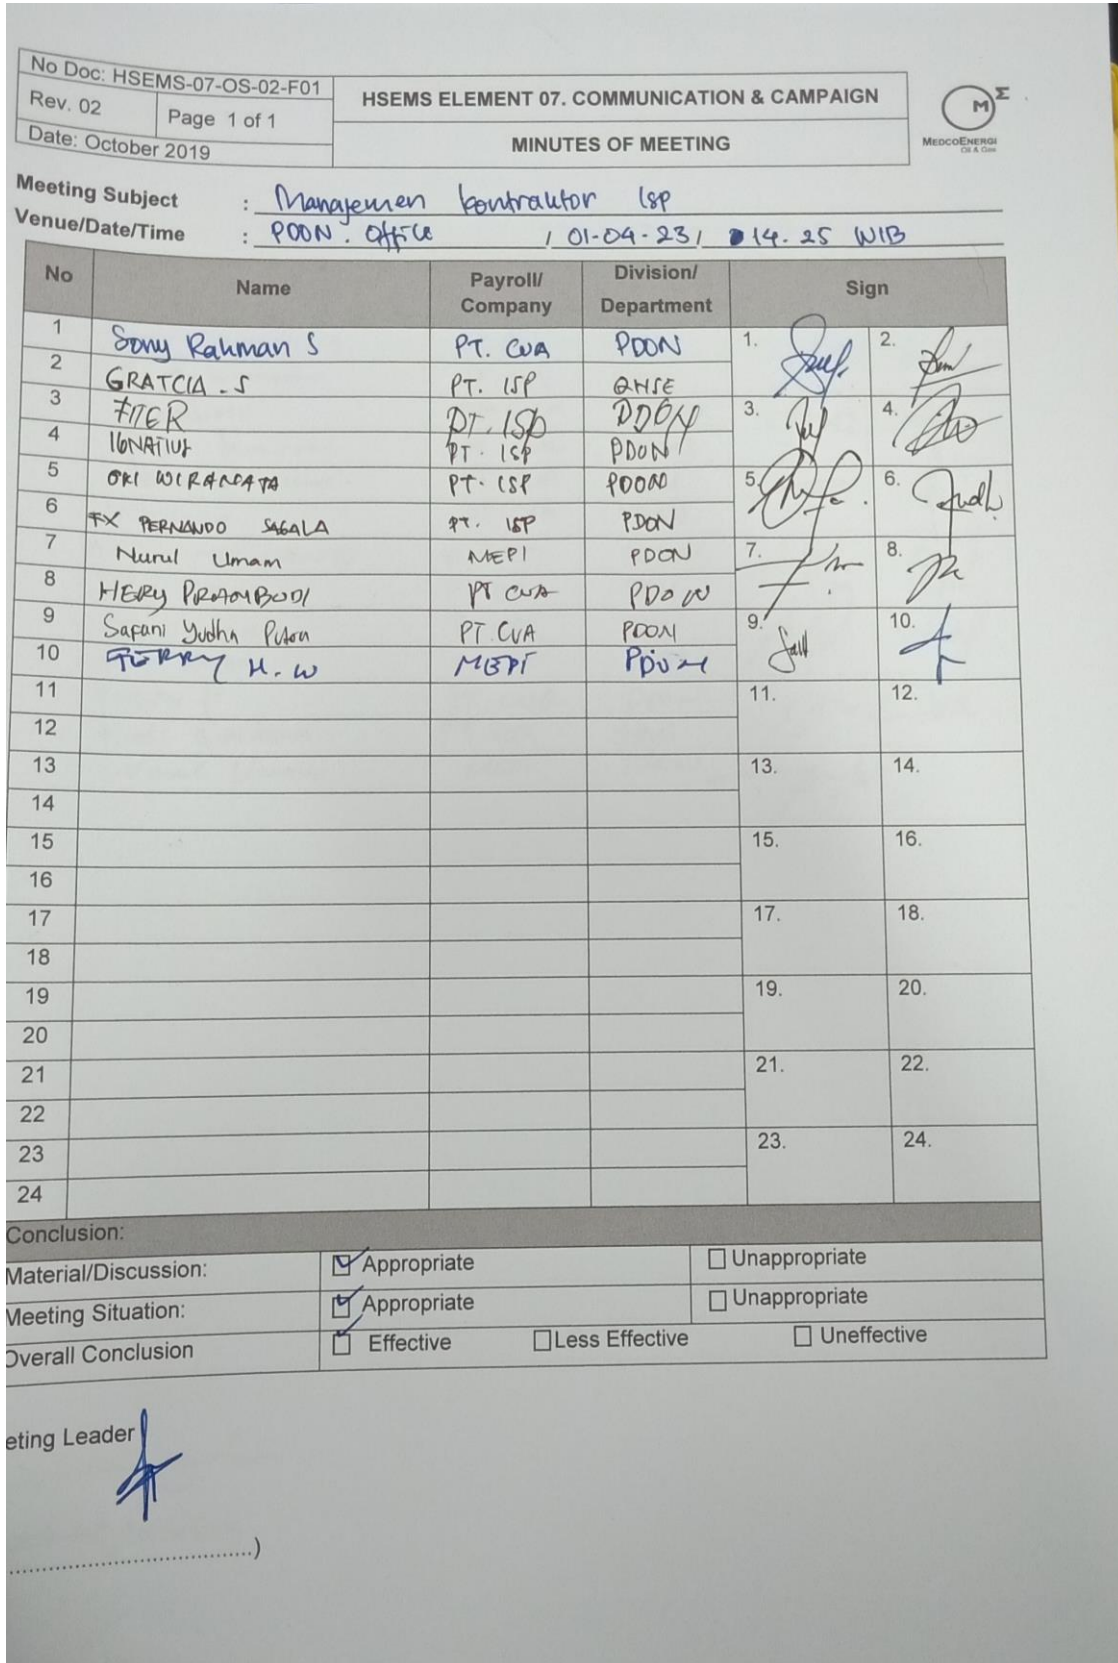 No Doc: HSEMS-07-OS-02-F01
Rev. 02
Page 1 of 1
Date: October 2019
HSEMS ELEMENT 07. COMMUNICATION & CAMPAIGN
MINUTES OF MEETING
MEDCOENERGI
Oil & Gas
Meeting Subject : Manajemen kontraktor Isp
Venue/Date/Time : PDON. Office / 01-04-23 / 14.25 WIB
No Name Payroll/Company Division/Department Sign
1 Sony Rahman S PT. CVA PDON
2 GRATCIA.S PT. ISP QHSE
3 FITER PT. ISP PDON
4 IGNATIUS PT. ISP PDON
5 OKI WIRANATA PT. ISP PDON
6 FX PERNANDO SAGALA PT. ISP PDON
7 Nurul Umam MEPI PDON
8 HERY PRAMBUDI PT CVA PDON
9 Safani Yudha Putra PT. CVA PDON
10 FERRY H. W MEPI PDON
11
12
13
14
15
16
17
18
19
20
21
22
23
24
1. 2.
3. 4.
5. 6.
7. 8.
9. 10.
11. 12.
13. 14.
15. 16.
17. 18.
19. 20.
21. 22.
23. 24.
Conclusion:
Material/Discussion: Appropriate Unappropriate
Meeting Situation: Appropriate Unappropriate
Overall Conclusion Effective Less Effective Uneffective
eting Leader
....................................)